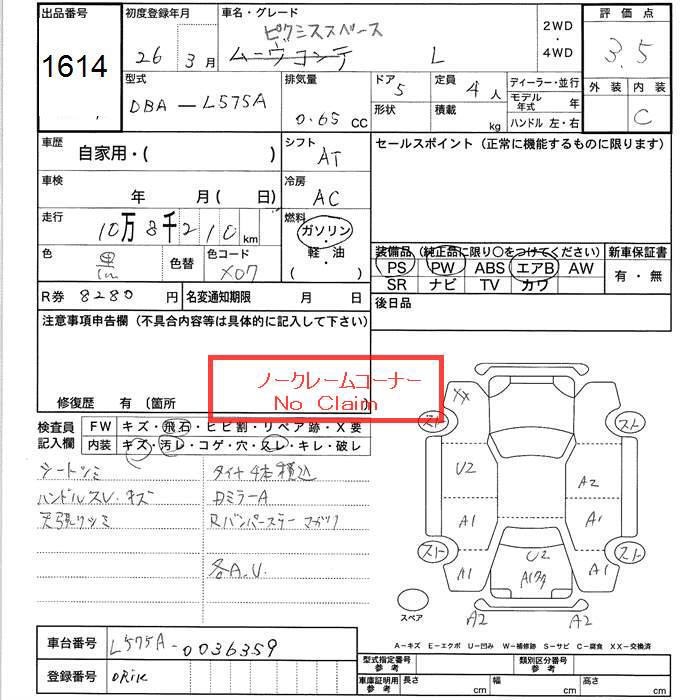 出品番号 1614
初度登録年月 26年 3月
車名・グレード ピクシススペース
ムーヴコンテ L
2WD・4WD
評価点 3.5
型式 DBA-L575A
排気量 0.65 cc
ドア 5
形状
定員 4人
積載 kg
ディーラー・並行
モデル年式 年
ハンドル 左・右
外装 内装 C
車歴 自家用・( )
シフト AT
セールスポイント (正常に機能するものに限ります)
車検 年 月 ( 日)
冷房 AC
走行 10万8千210km
燃料 ガソリン・軽油・( )
色 黒 色替 色コード X07
装備品 (純正品に限り〇をつけてください)
PS PW ABS エアB AW
SR ナビ TV カワ
新車保証書 有・無
R券 8280円
名変通知期限 月 日
後日品
注意事項申告欄 (不具合内容等は具体的に記入して下さい)
ノークレームコーナー
No Claim
修復歴 有 (箇所
検査員記入欄
FW キズ・飛石・ヒビ割・リペア跡・X要
内装 キズ・汚レ・コゲ・穴・スレ・キレ・破レ
シートシミ タイヤ4本積込
ハンドルスレ・キズ DミラーA
天張リシミ Rバンパーステーマガリ
各A.U.
XX
スト スト
U2 A2
A1 A1
スト スト
A1 U2 A1
スペア
A2 A2
A-キズ E-エクボ U-凹み W-補修跡 S-サビ C-腐食 XX-交換済
車台番号 L575A-0036359
登録番号
型式指定番号 参考
類別区分番号 参考
車庫証明用 参考 長さ cm 幅 cm 高さ cm